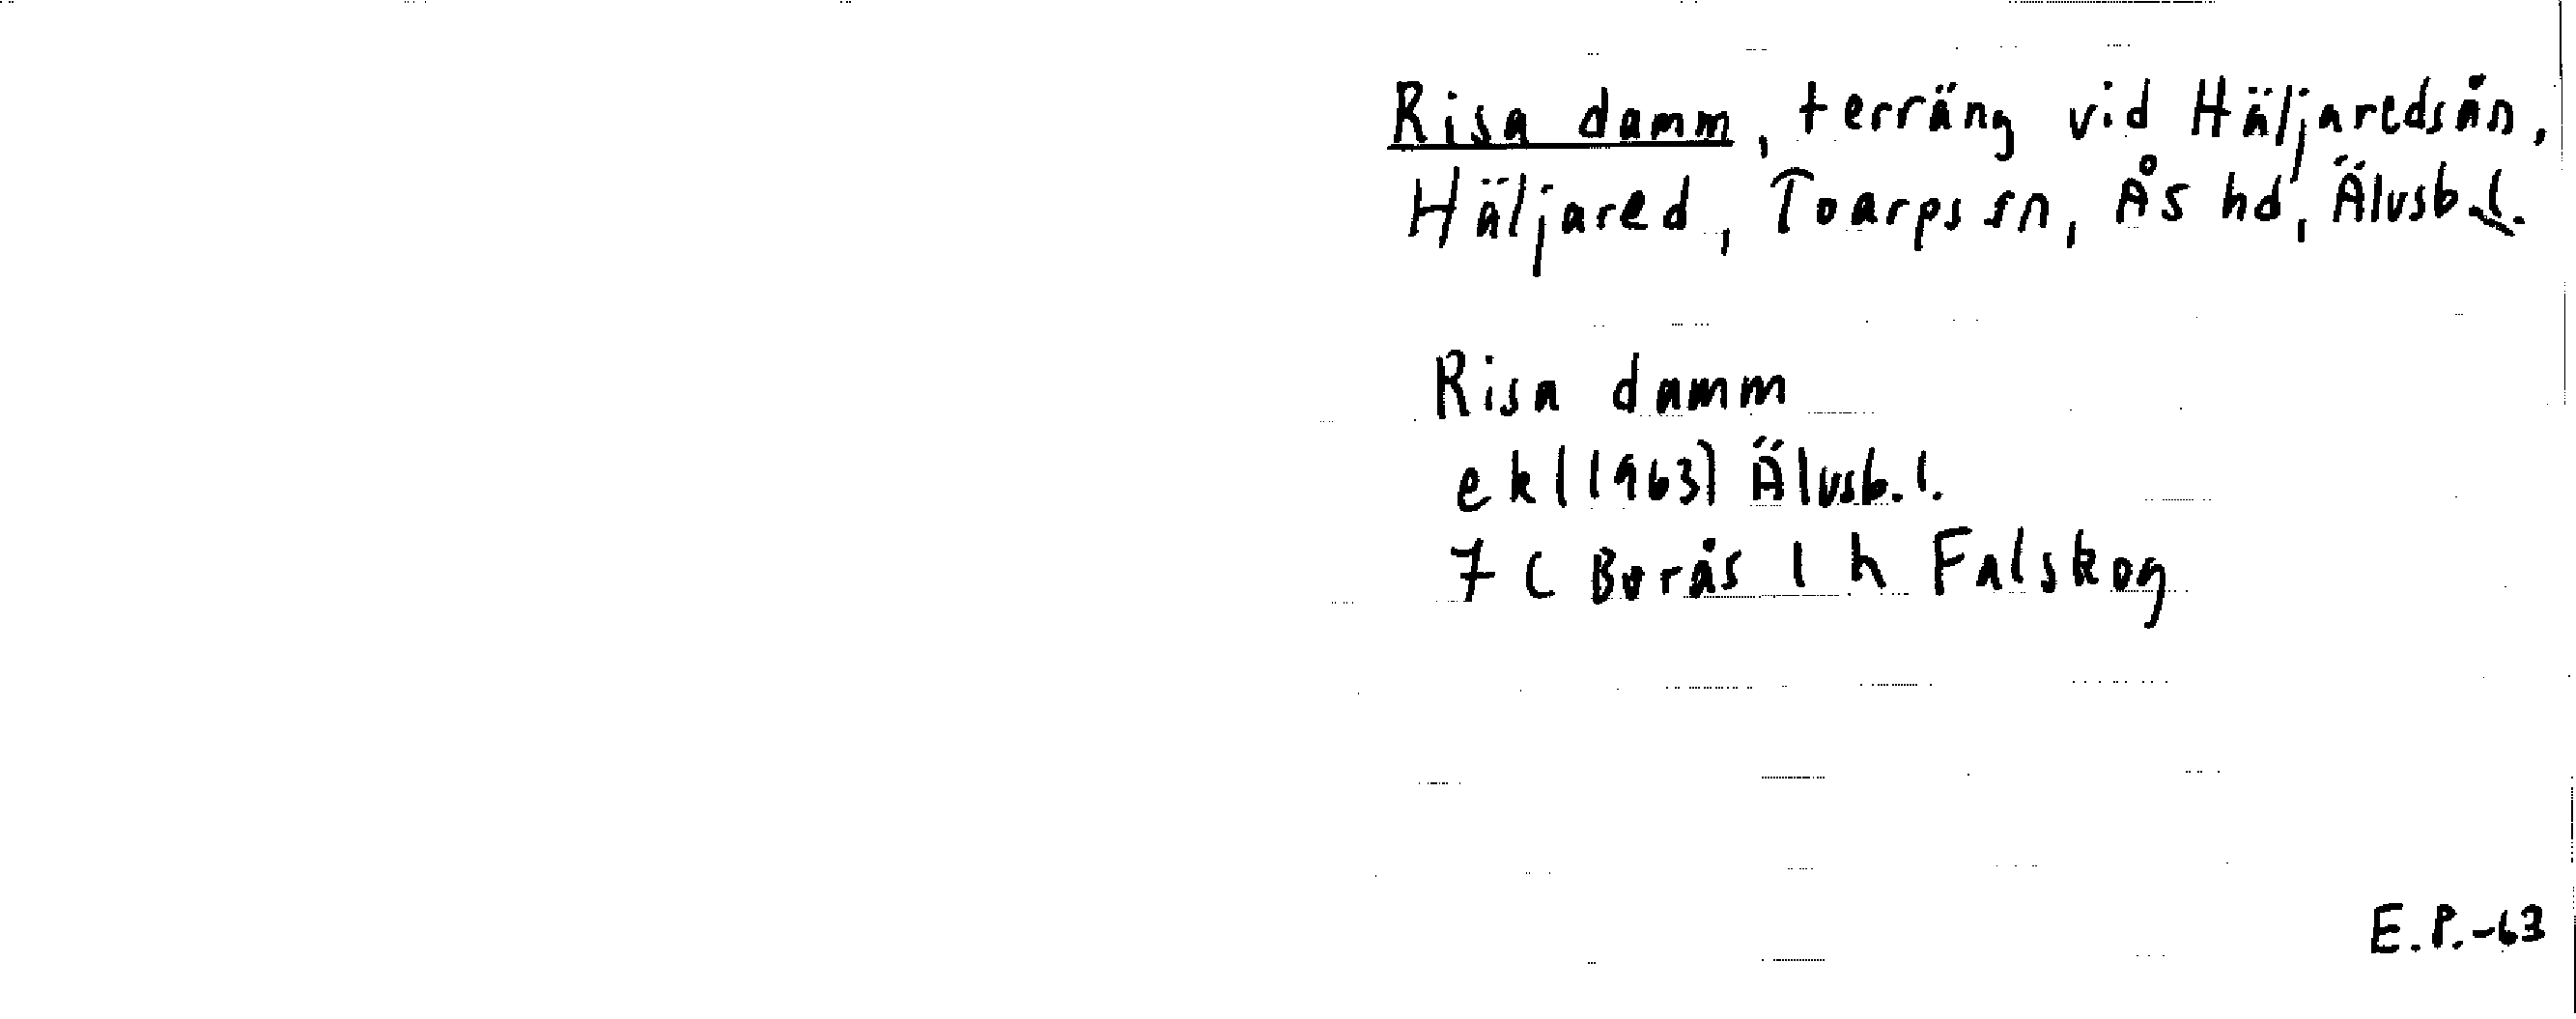 Risa damm, terräng vid Häljaredsån,
Häljared, Toarps sn, Ås hd, Älvsb. l.
Risa damm
ek (1963) Älvsb. l.
7 C Borås 1 h Falskog
E.P.-63